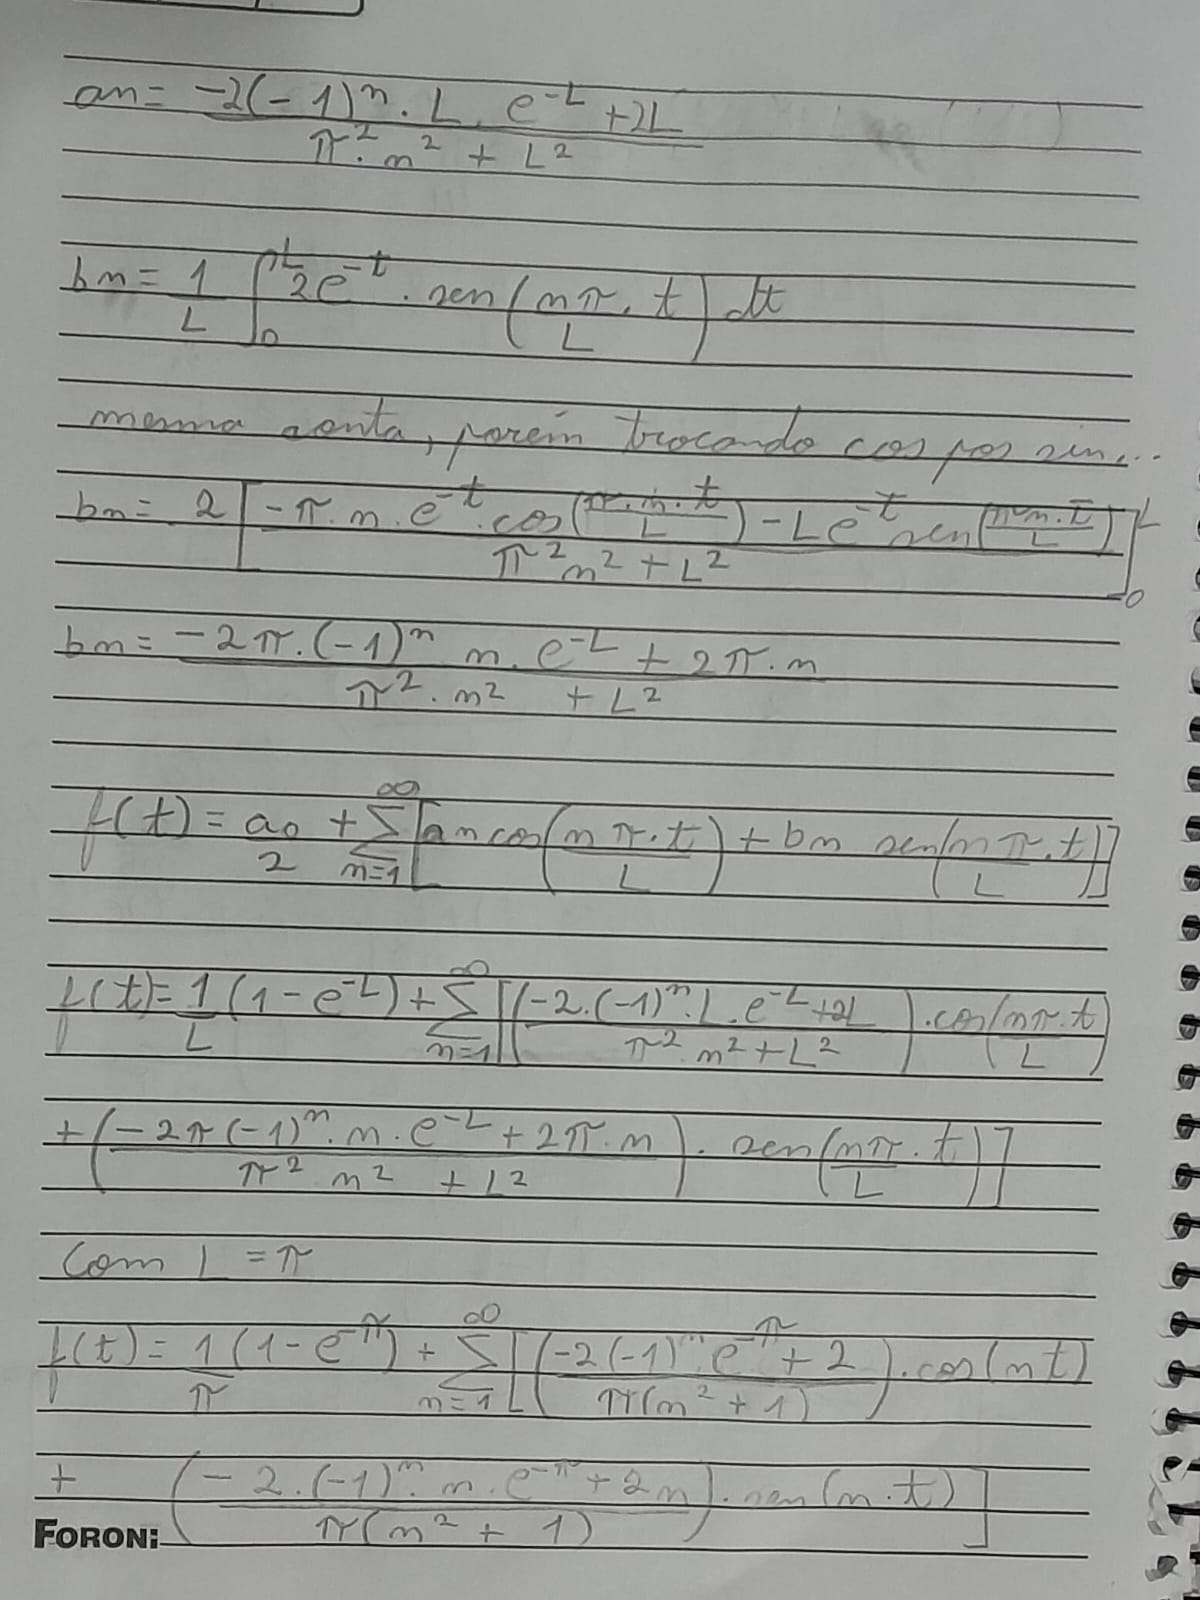 an = -2(-1)^n . L . e^-L + 2L
π² . n² + L²
bn = 1/L ∫₀^L 2e^-t . sen(nπ . t / L) dt
mesma conta, porém trocando cos por sin...
bn = 2 [-π . n . e^-t . cos(π . n . t / L) - L e^-t sen(π n . t / L)]₀^L
π² n² + L²
bn = -2π . (-1)^n n . e^-L + 2π . n
π² . n² + L²
f(t) = a₀/2 + Σ_{n=1}^∞ [an cos(nπ . t / L) + bn sen(nπ . t / L)]
f(t) = 1/L (1 - e^-L) + Σ_{n=1}^∞ [((-2 . (-1)^n . L . e^-L + 2L) / (π² . n² + L²)) . cos(nπ . t / L)
+ ((-2π (-1)^n . n . e^-L + 2π . n) / (π² n² + L²)) . sen(nπ . t / L)]
Com L = π
f(t) = 1/π (1 - e^-π) + Σ_{n=1}^∞ [((-2(-1)^n . e^-π + 2) / (π(n² + 1))) . cos(nt)
+ ((-2 . (-1)^n . n . e^-π + 2n) / (π(n² + 1))) . sen(n . t)]
FORONI